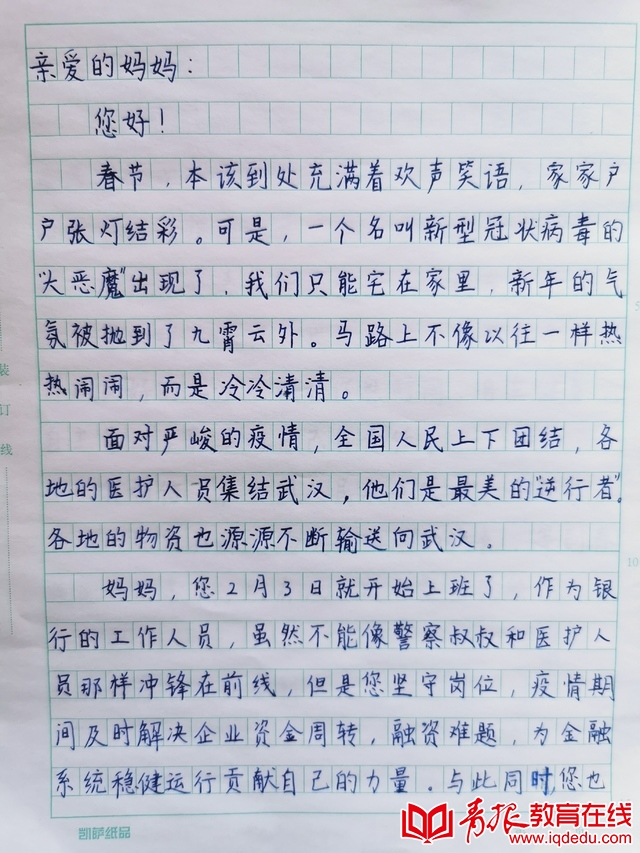 亲爱的妈妈：
您好！
春节，本该到处充满着欢声笑语，家家户
户张灯结彩。可是，一个名叫新型冠状病毒的
“大恶魔”出现了，我们只能宅在家里，新年的气
氛被抛到了九霄云外。马路上不像以往一样热
热闹闹，而是冷冷清清。
面对严峻的疫情，全国人民上下团结，各
地的医护人员集结武汉，他们是最美的“逆行者”。
各地的物资也源源不断输送向武汉。
妈妈，您2月3日就开始上班了，作为银
行的工作人员，虽然不能像警察叔叔和医护人
员那样冲锋在前线，但是您坚守岗位，疫情期
间及时解决企业资金周转，融资难题，为金融
系统稳健运行贡献自己的力量。与此同时，您也
装
订
线
10
凯萨纸品
青报教育在线
www.iqdedu.com